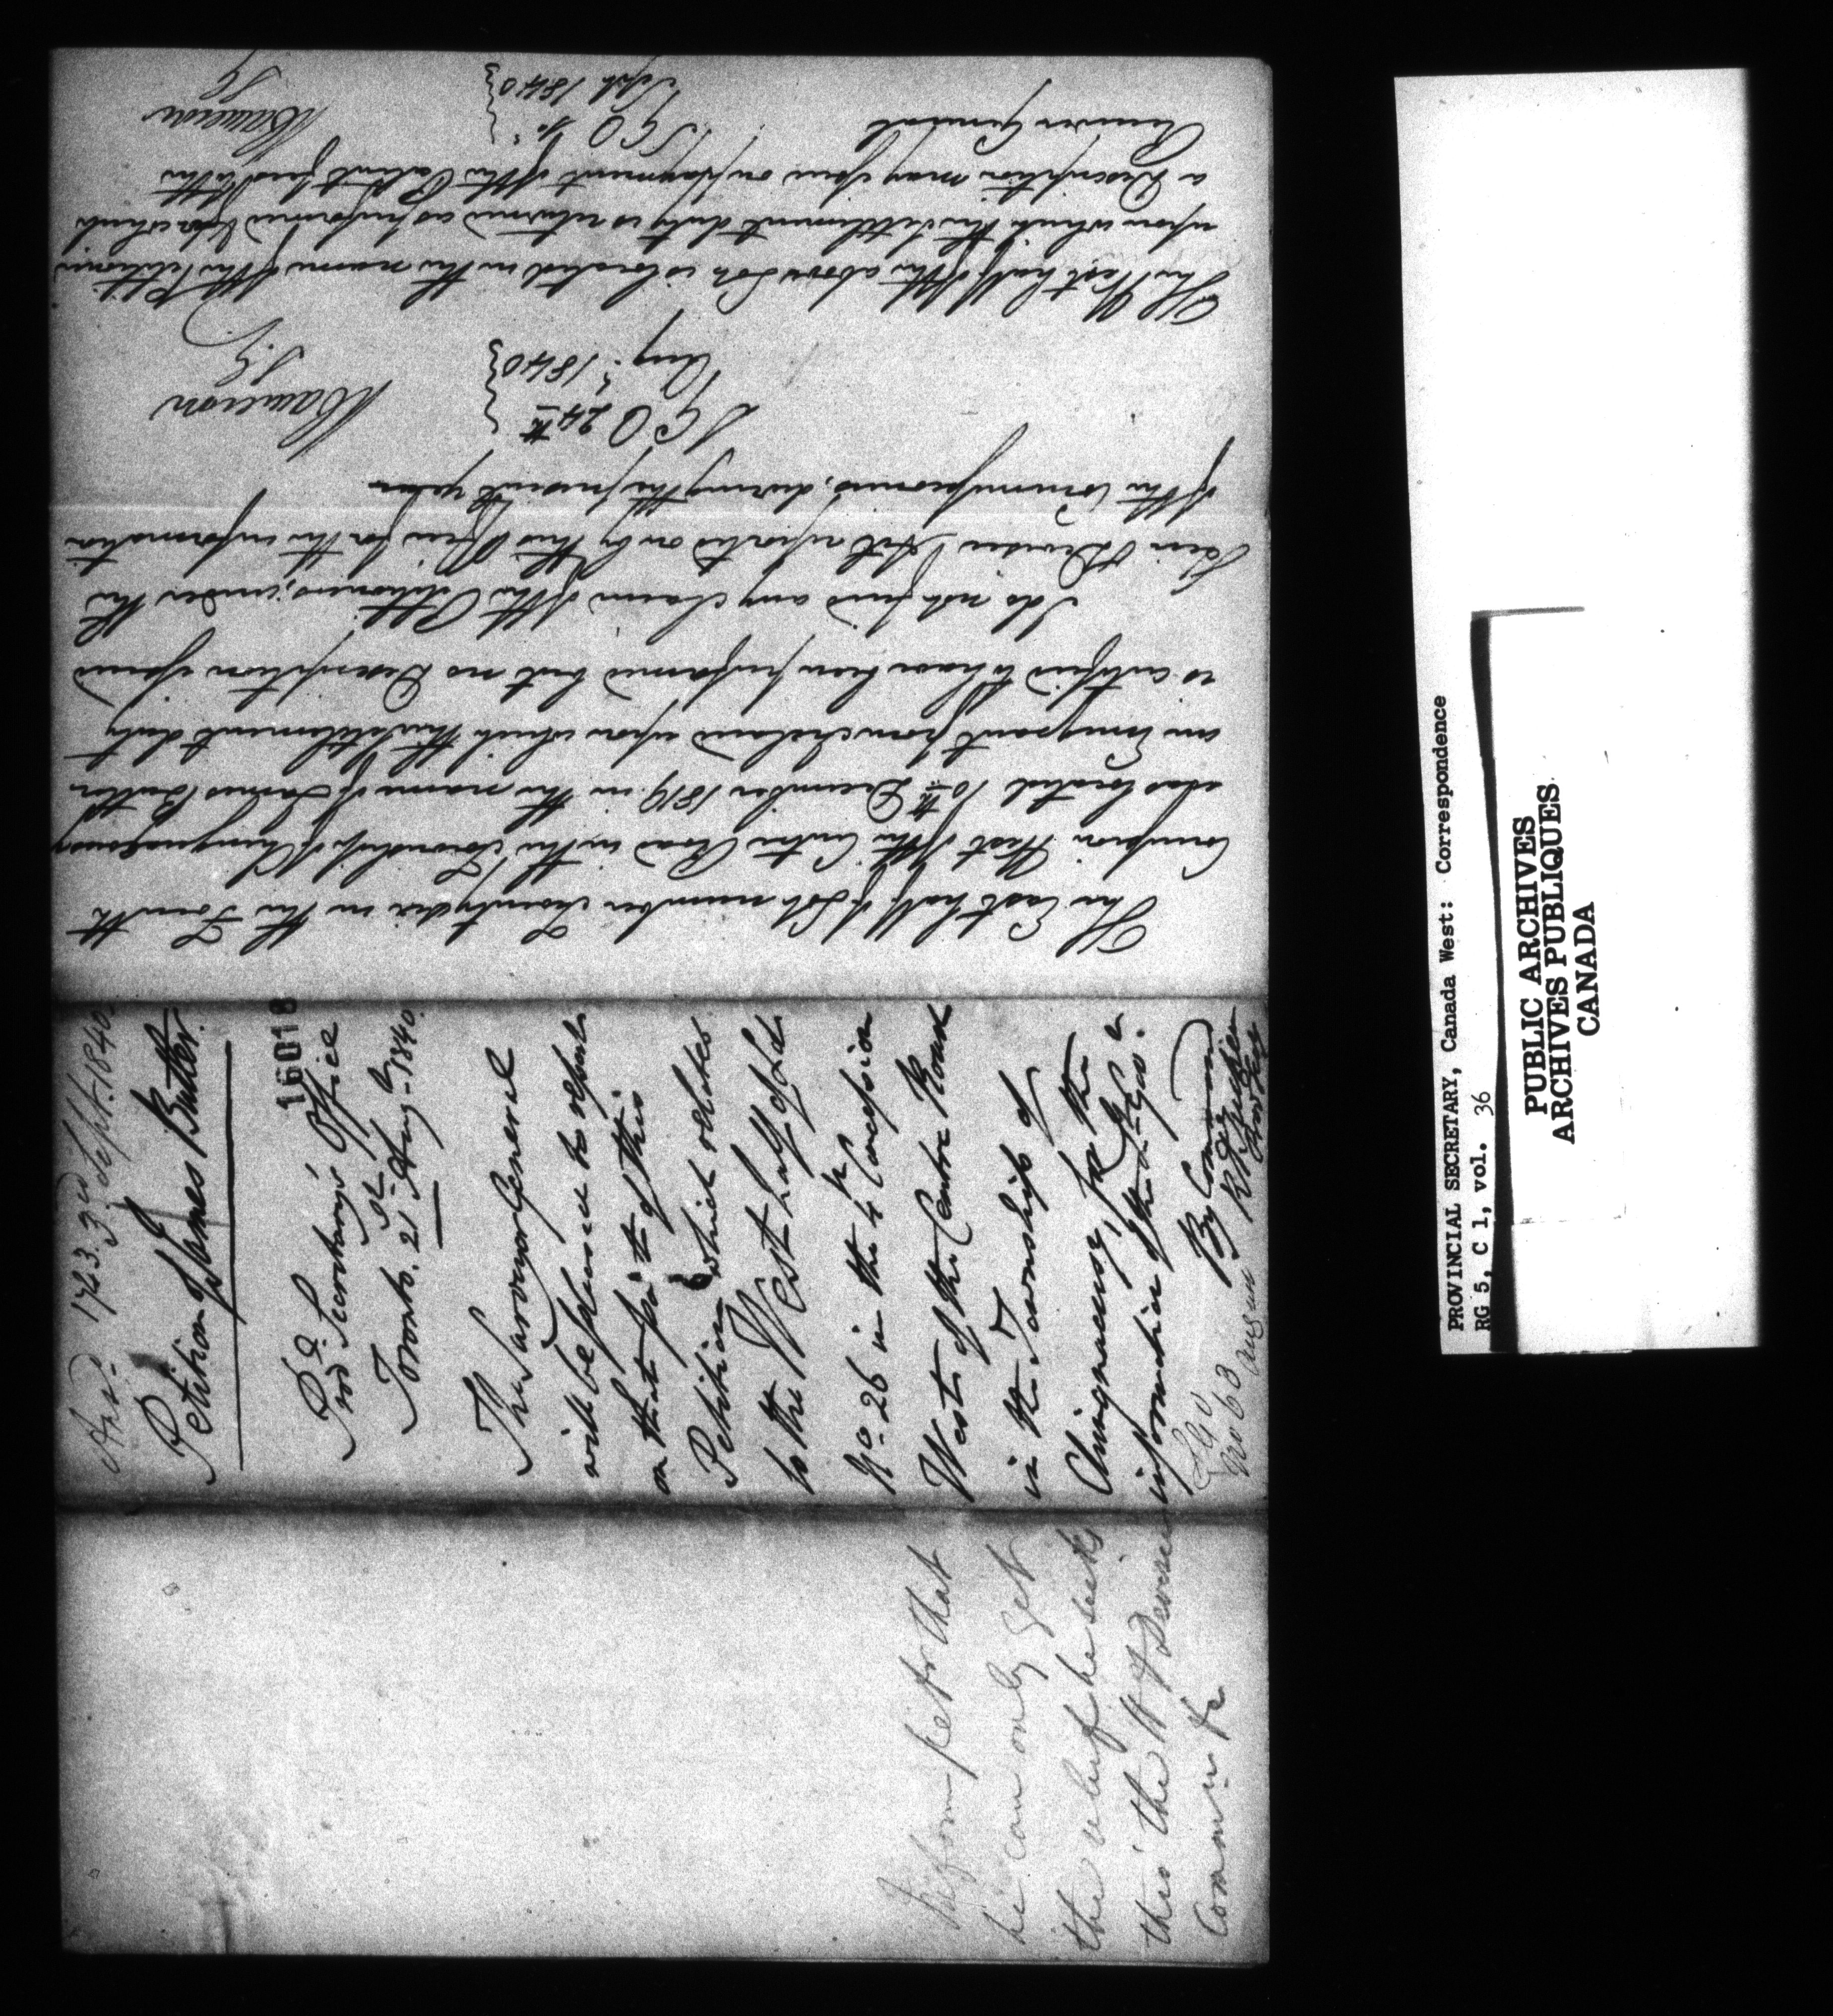 The East half of Lot number Twenty six in the Fourth
Concession West of the Centre Road in the Township of Chinguacousy
was located 10th December 1819 in the name of James Butler
an Emigrant from Ireland upon which the Settlement duty
is certified to have been performed but no Description issued
I do not find any claim of the Petitioners, under the
Heir & Devisee Act reported on by this Office for the information
of the Commissioners, during the present year
SGO 24th
Augt. 1840
Macaulay
S.G.
The West half of the above Lot is located in the name of the Petitioner
upon which the Settlement duty is returned as performed & for which
a Description may issue on payment of the Patent fees to the
Receiver General
SGO
Sept 1840
SG
Ansd. 1743. 3rd Sept. 1840.
Petition of James Butler.
16018
Prol Secretary's Office
Toronto. 21st Augt. 1840.
The Surveyor General
will be pleased to report
on that part of this
Petition which relates
to the West half of Lot
No. 26 in the 4th Concession
West of the Centre Road
in the Township of
Chinguacousy, for the
information of the Lt. Govr.
By Command
SGO
No 63 August
Inform petr that
he can only get
the relief he seeks
thro' the H & Devisee
Commn &c
PROVINCIAL SECRETARY, Canada West: Correspondence
RG 5, C 1, vol. 36
PUBLIC ARCHIVES
ARCHIVES PUBLIQUES
CANADA